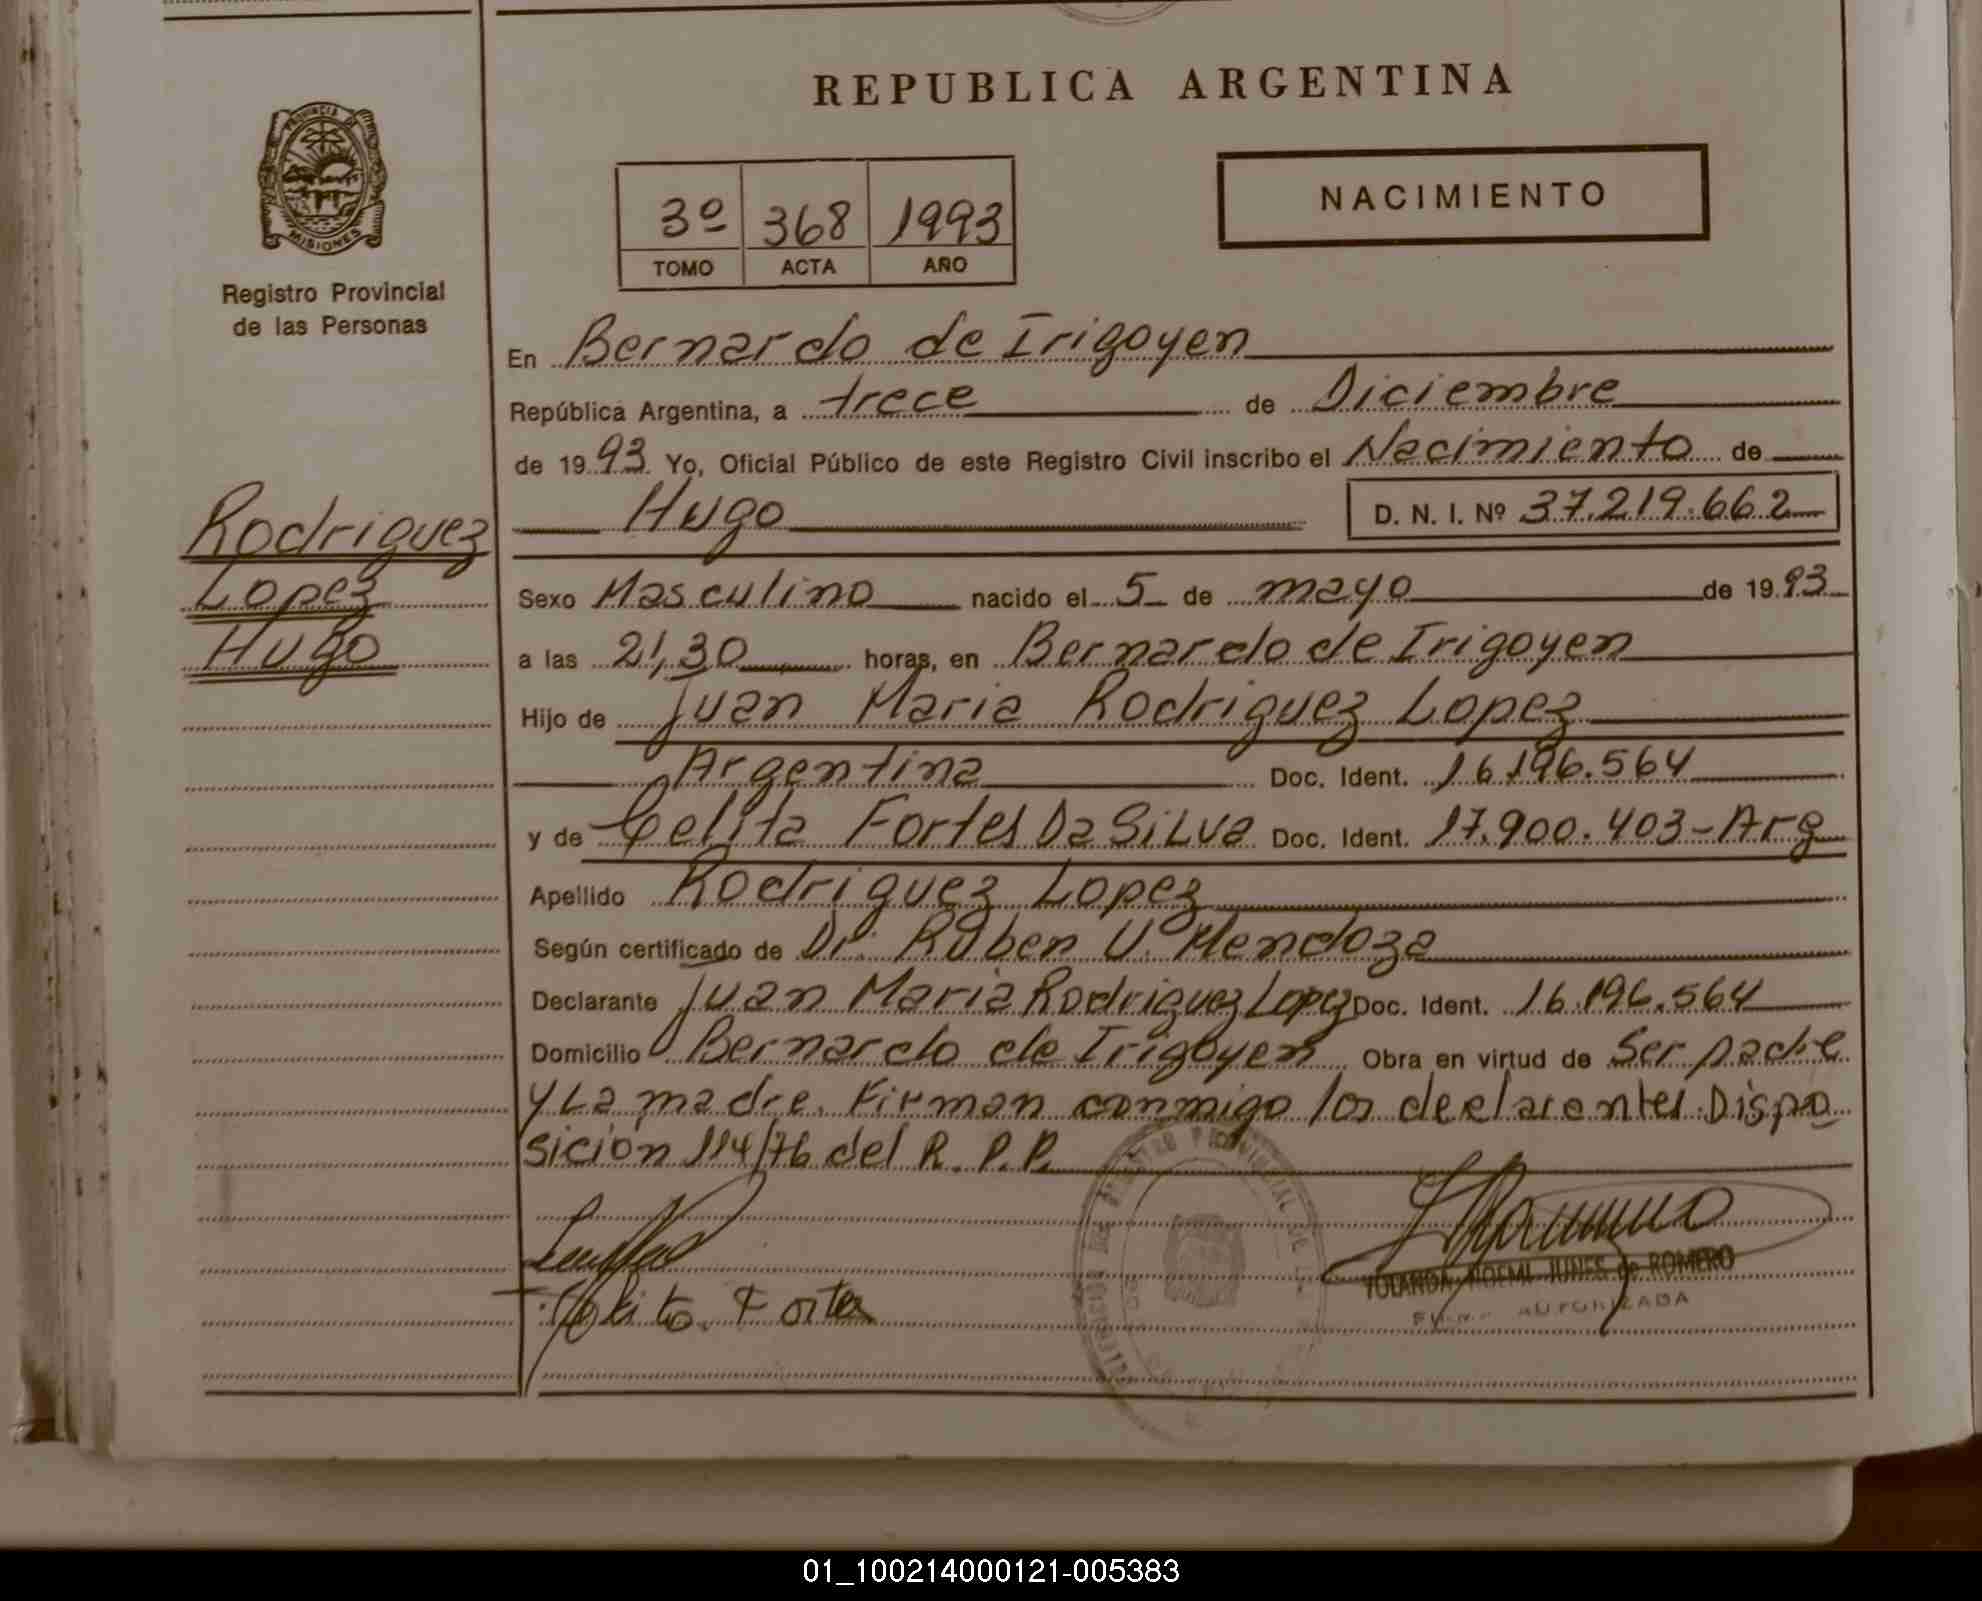 REPUBLICA ARGENTINA
PROVINCIA DE
MISIONES
Registro Provincial
de las Personas
3º 368 1993
TOMO ACTA AÑO
NACIMIENTO
Rodriguez
Lopez
Hugo
En Bernardo de Irigoyen
República Argentina, a trece de Diciembre
de 1993 Yo, Oficial Público de este Registro Civil inscribo el Nacimiento de
Hugo D. N. I. Nº 37.219.662
Sexo Masculino nacido el 5 de mayo de 1993
a las 21,30 horas, en Bernardo de Irigoyen
Hijo de Juan Maria Rodriguez Lopez
Argentina Doc. Ident. 16.196.564
y de Celita Fortes Da Silva Doc. Ident. 17.900.403-Arg
Apellido Rodriguez Lopez
Según certificado de Dr. Ruben U. Mendoza
Declarante Juan Maria Rodriguez Lopez Doc. Ident. 16.196.564
Domicilio Bernardo de Irigoyen Obra en virtud de Ser padre
y La madre. Firman conmigo los declarantes. Dispo
sición 114/76 del R. P. P.
YOLANDA NOEMI JUNES de ROMERO
AUTORIZADA
01_100214000121-005383